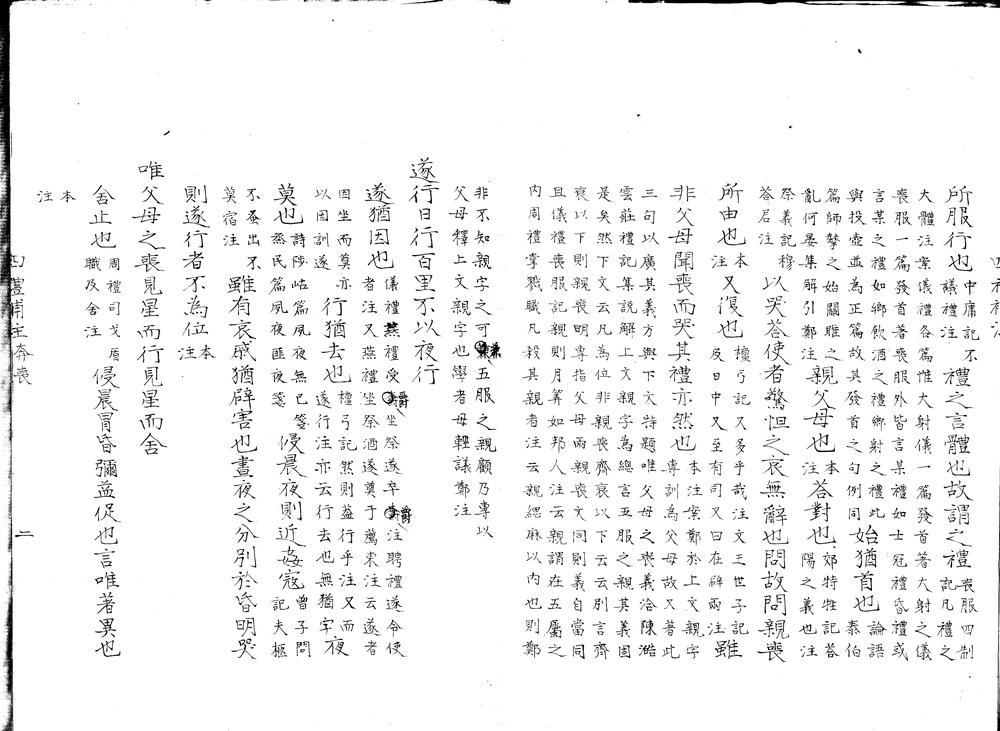 所服行也
中庸記不
議禮注
禮之言體也故謂之禮
喪服四制
記凡禮之
大體注案儀禮各篇惟大射儀一篇發首著大射之儀
喪服一篇發首著喪服外皆言某禮如士冠禮昏禮或
言某之禮如鄉飲酒之禮鄉射之禮此
與投壺並為正篇故其發首之句例同
始猶首也
論語
泰伯
篇師摯之始關雎之
亂何晏集解引鄭注
親父母也
本
注
答對也
郊特牲記答
陽之義也注
祭義記穆
答君注
以哭答使者驚怛之哀無辭也問故問親喪
所由也
本
注
又復也
檀弓記又多乎哉注文王世子記
反日中又至有司又曰在辟兩注
雖
非父母聞喪而哭其禮亦然也
本注案鄭於上文親字
專訓為父母故又著此
三句以廣其義方與下文特題唯父母之喪義洽陳澔
雲莊禮記集說解上文親字為總言五服之親其義固
是矣然下文云凡為位非親喪齊衰以下云云別言齊
衰以下則親喪明專指父母兩親喪文同則義自當同
且儀禮喪服記親則月筭如邦人注云親謂在五屬之
內周禮掌戮職凡殺其親者注云親緦麻以內也則鄭
非不知親字之可兼五服之親顧乃專以
父母釋上文親字也學者毋輕議鄭注
遂行日行百里不以夜行
遂猶因也
儀禮燕禮受爵坐祭遂卒爵注聘禮遂令使
者注又燕禮坐祭酒遂奠于薦東注云遂者
因坐而奠亦
以因訓遂
行猶去也
檀弓記然則盍行乎注又而
遂行注亦云行去也無猶字
夜
莫也
詩陟岵篇夙夜無已箋
烝民篇夙夜匪夜箋
侵晨夜則近姦寇
曾子問
記夫柩
不蚤出不
莫宿注
雖有哀戚猶辟害也晝夜之分別於昏明哭
則遂行者不為位
本
注
唯父母之喪見星而行見星而舍
舍止也
周禮司戈盾
職及舍注
侵晨冒昏彌益促也言唯著異也
本
注
奔喪
二